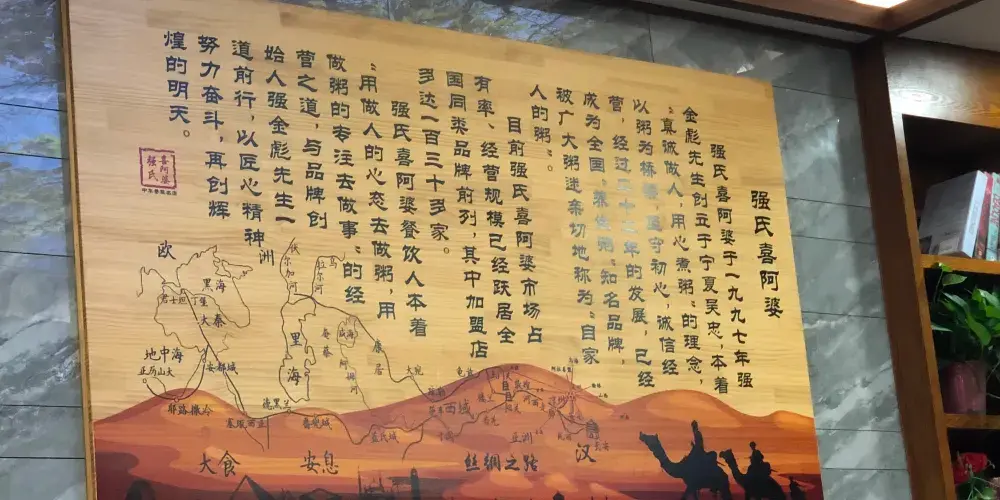 强氏喜阿婆
强氏喜阿婆于一九九七年强
金彪先生创立于宁夏吴忠，本着
“真诚做人，用心煮粥”的理念，
以粥为桥梁，坚守初心，诚信经
营，经过十三年的发展，已经
成为全国“养生粥”知名品牌，
被广大粥迷亲切地称为“自家
人的粥”。
目前强氏喜阿婆市场占
有率、经营规模已经跃居全
国同类品牌前列，其中加盟店
多达一百三十多家。
强氏喜阿婆餐饮人本着
“用做人的心态去做粥，用
做粥的专注去做事”的经
营之道，与品牌创
始人强金彪先生一
道前行，以匠心精神
努力奋斗，再创辉
煌的明天。
喜阿婆
强氏
欧
洲
黑海
君士坦丁堡
大秦
地中海
安都城
亚历山大
耶路撒冷
里海
咸海
康居
大宛
西域
大食
安息
丝绸之路
汉